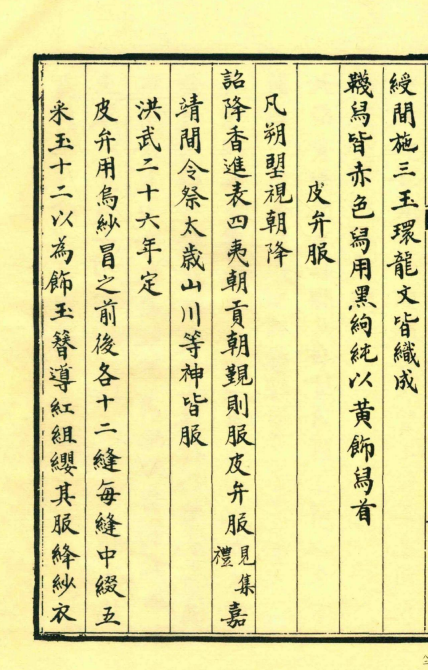 綬間施三玉環龍文皆織成
韈舄皆赤色舄用黑絇純以黄飾舄首
皮弁服
凡朔朢視朝降
詔降香進表四夷朝貢朝覲則服皮弁服見集禮嘉
靖間令祭太歳山川等神皆服
洪武二十六年定
皮弁用烏紗冒之前後各十二縫每縫中綴五
采玉十二以為飾玉簪導紅組纓其服絳紗衣